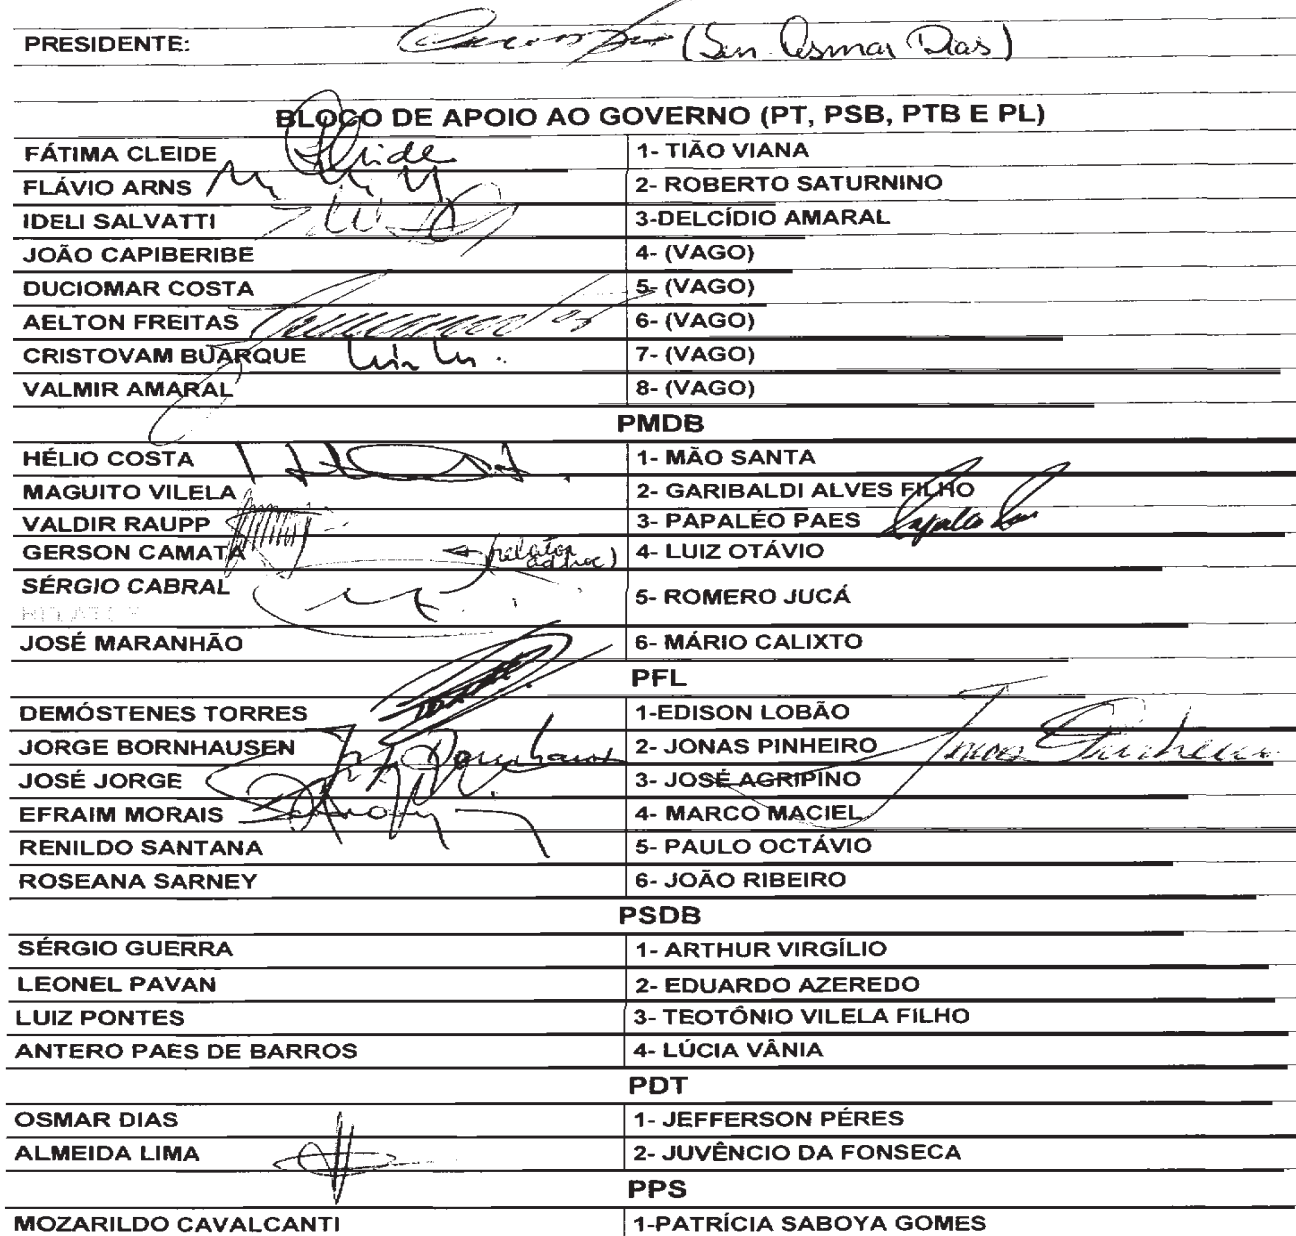 PRESIDENTE: (Sen Osmar Dias)
BLOCO DE APOIO AO GOVERNO (PT, PSB, PTB E PL)
FÁTIMA CLEIDE Cleide 1- TIÃO VIANA
FLÁVIO ARNS 2- ROBERTO SATURNINO
IDELI SALVATTI 3-DELCÍDIO AMARAL
JOÃO CAPIBERIBE 4- (VAGO)
DUCIOMAR COSTA 5- (VAGO)
AELTON FREITAS 6- (VAGO)
CRISTOVAM BUARQUE 7- (VAGO)
VALMIR AMARAL 8- (VAGO)
PMDB
HÉLIO COSTA 1- MÃO SANTA
MAGUITO VILELA 2- GARIBALDI ALVES FILHO
VALDIR RAUPP 3- PAPALÉO PAES Papaléo Paes
GERSON CAMATA (relator ad hoc) 4- LUIZ OTÁVIO
SÉRGIO CABRAL 5- ROMERO JUCÁ
RELATOR
JOSÉ MARANHÃO 6- MÁRIO CALIXTO
PFL
DEMÓSTENES TORRES 1-EDISON LOBÃO
JORGE BORNHAUSEN Bornhausen 2- JONAS PINHEIRO Jonas Pinheiro
JOSÉ JORGE 3- JOSÉ AGRIPINO
EFRAIM MORAIS 4- MARCO MACIEL
RENILDO SANTANA 5- PAULO OCTÁVIO
ROSEANA SARNEY 6- JOÃO RIBEIRO
PSDB
SÉRGIO GUERRA 1- ARTHUR VIRGÍLIO
LEONEL PAVAN 2- EDUARDO AZEREDO
LUIZ PONTES 3- TEOTÔNIO VILELA FILHO
ANTERO PAES DE BARROS 4- LÚCIA VÂNIA
PDT
OSMAR DIAS 1- JEFFERSON PÉRES
ALMEIDA LIMA 2- JUVÊNCIO DA FONSECA
PPS
MOZARILDO CAVALCANTI 1-PATRÍCIA SABOYA GOMES